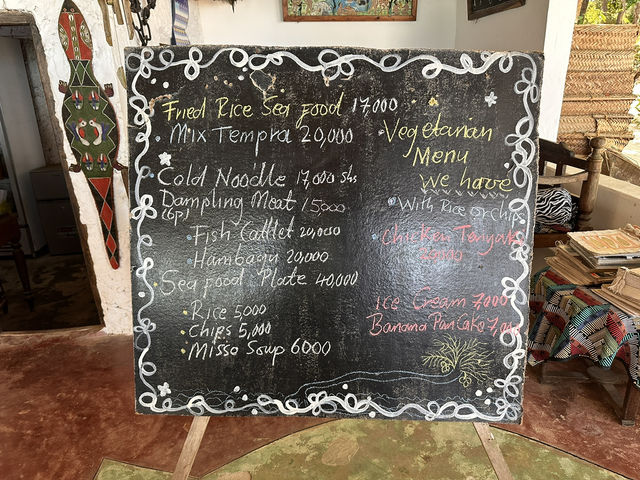 Fried Rice Sea food 17,000
Mix Tempra 20,000
Cold Noodle 17,000 shs
Dampling Meat 15,000
(6p)
Fish Catlet 20,000
Hambagu 20,000
Sea food Plate 40,000
Rice 5000
Chips 5,000
Misso Soup 6000
Vegetarian
Menu
We have
With Rice or chips
Chicken Teriyaki
20,000
Ice Cream 7,000
Banana PanCake 7,000